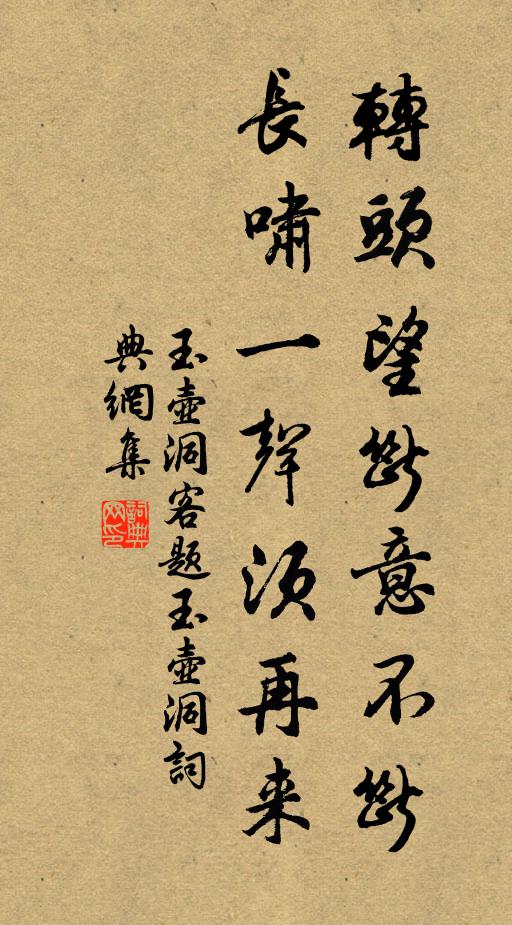 轉頭望斷意不斷
長嘯一聲須再来
玉壺洞客題玉壺洞詞
典網集
詞典網印